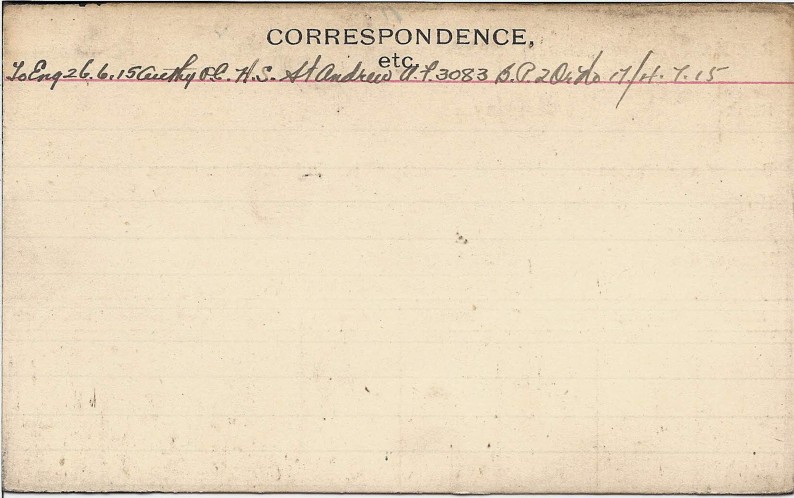 CORRESPONDENCE,
etc.
To Eng 26.6.15 authy O.C. H.S. St Andrew A.F. 3083 B.P.2 Ord No 17/4.7.15